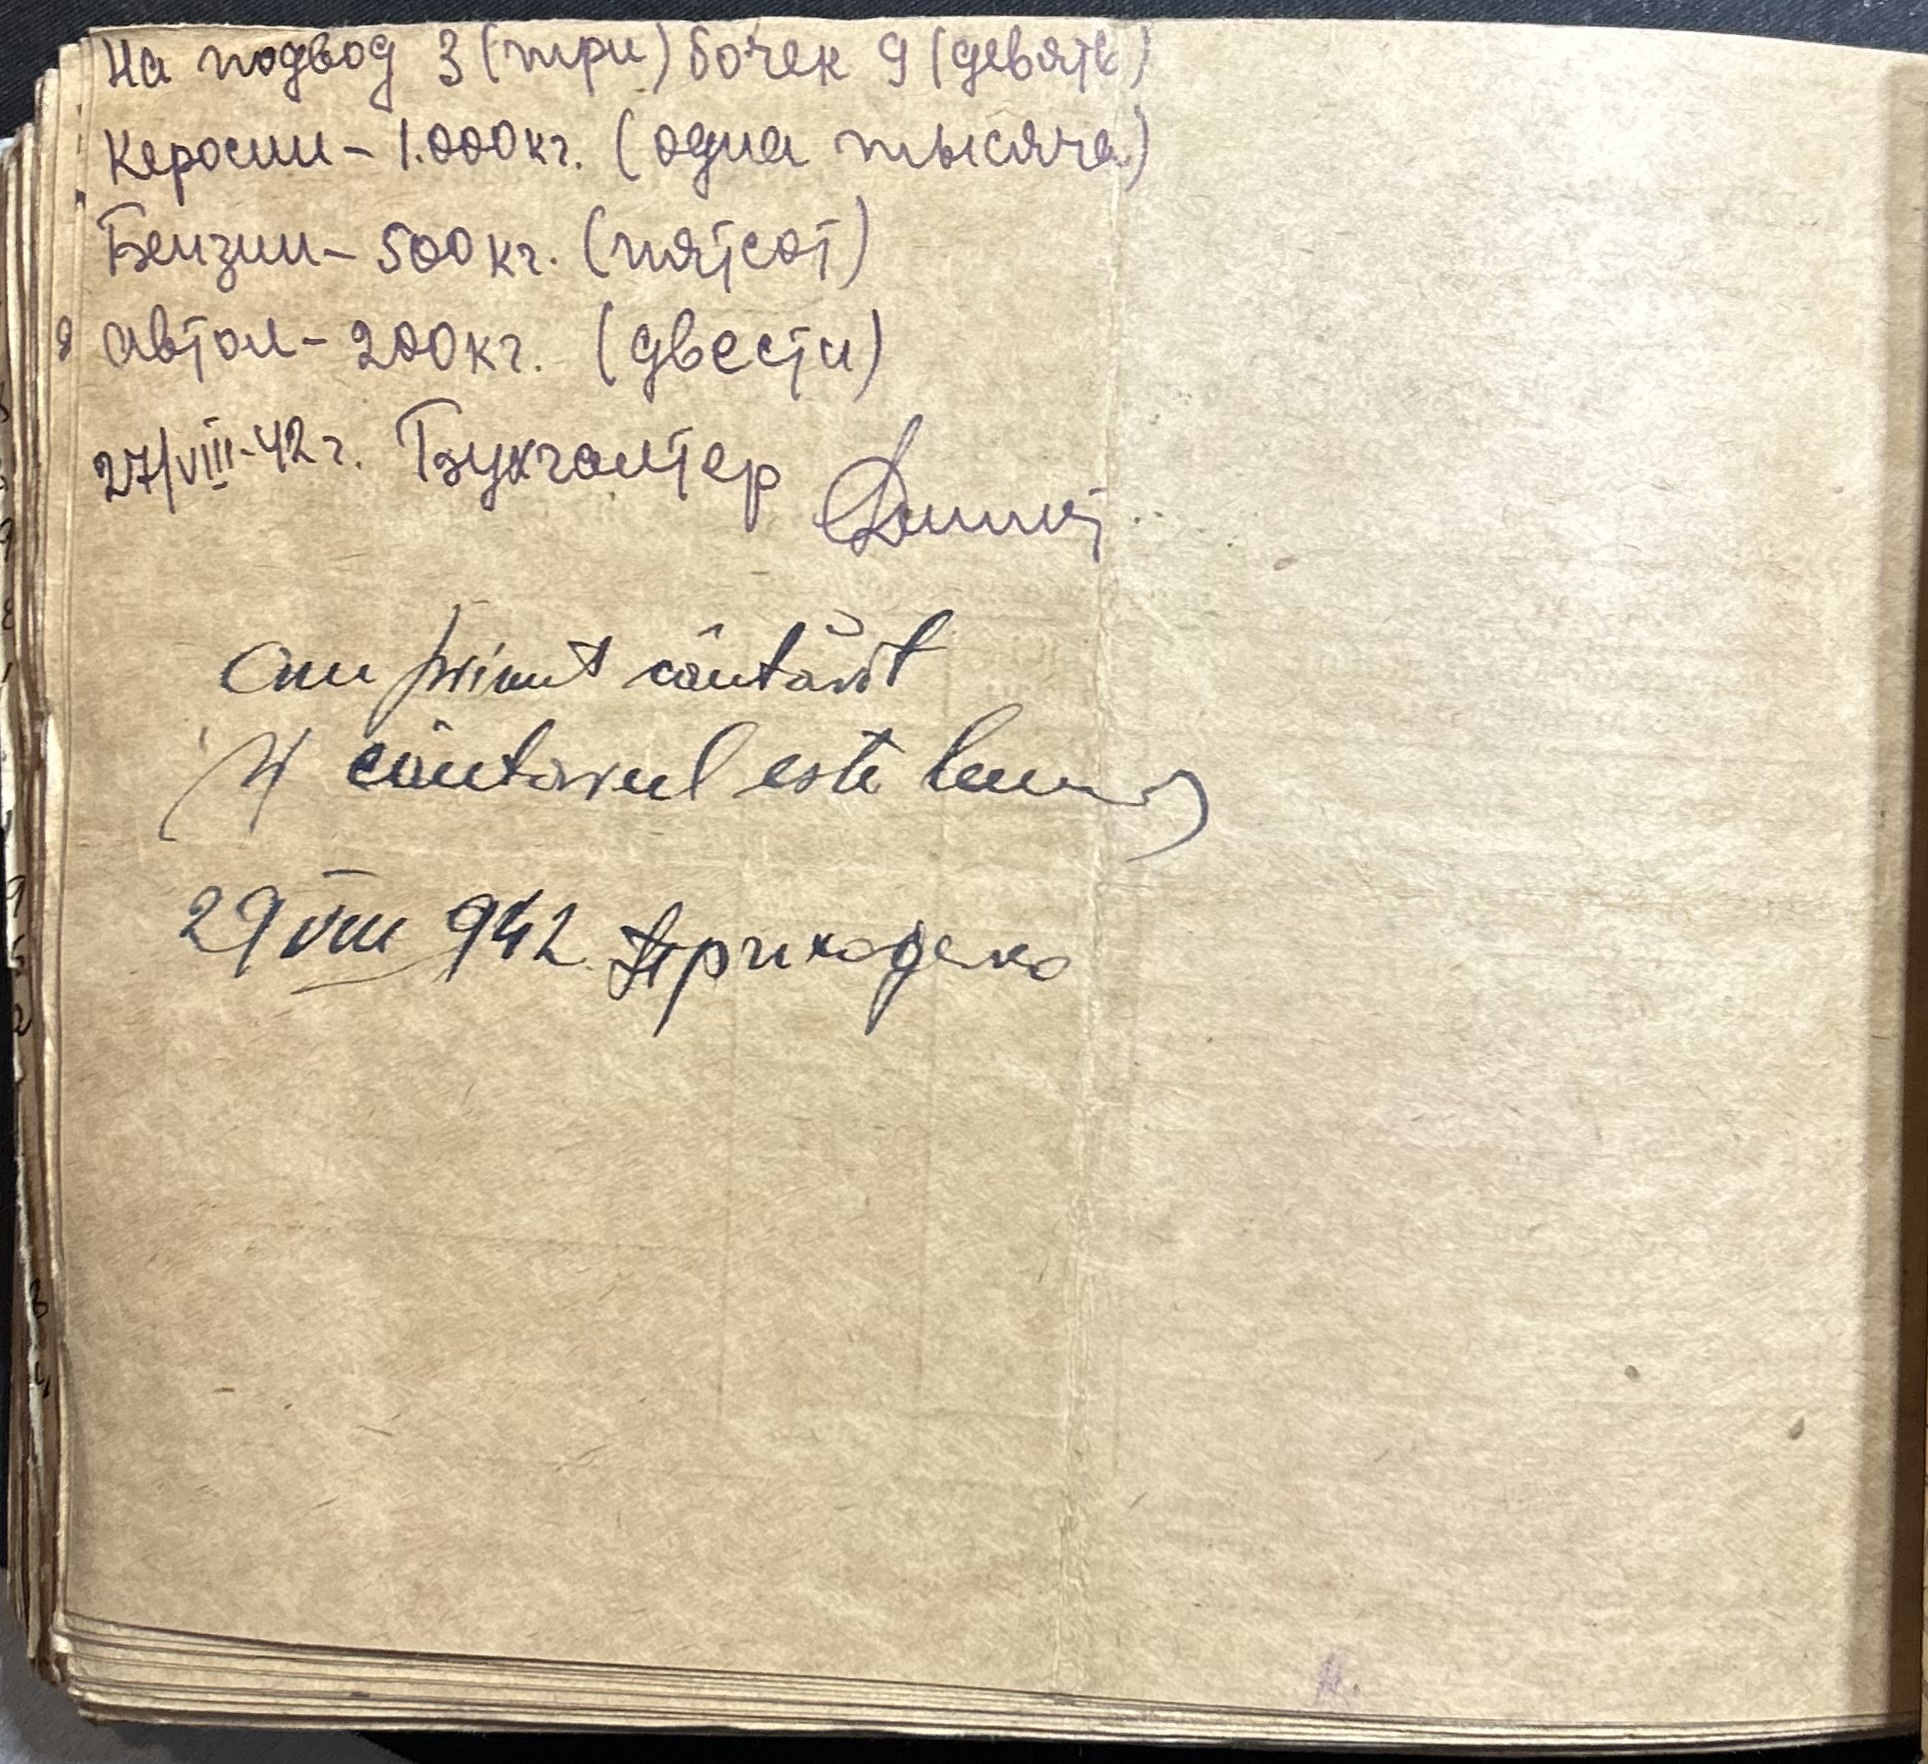 На подвод 3 (три) бочек 9 (девять)
Керосин - 1.000 кг. (одна тысяча)
Бензин - 500 кг. (пятсот)
автол - 200 кг. (двести)
27/VIII-42 г. Бухгалтер
am primit cântărit
și cântarul este bun
29 VIII 942 Приходько